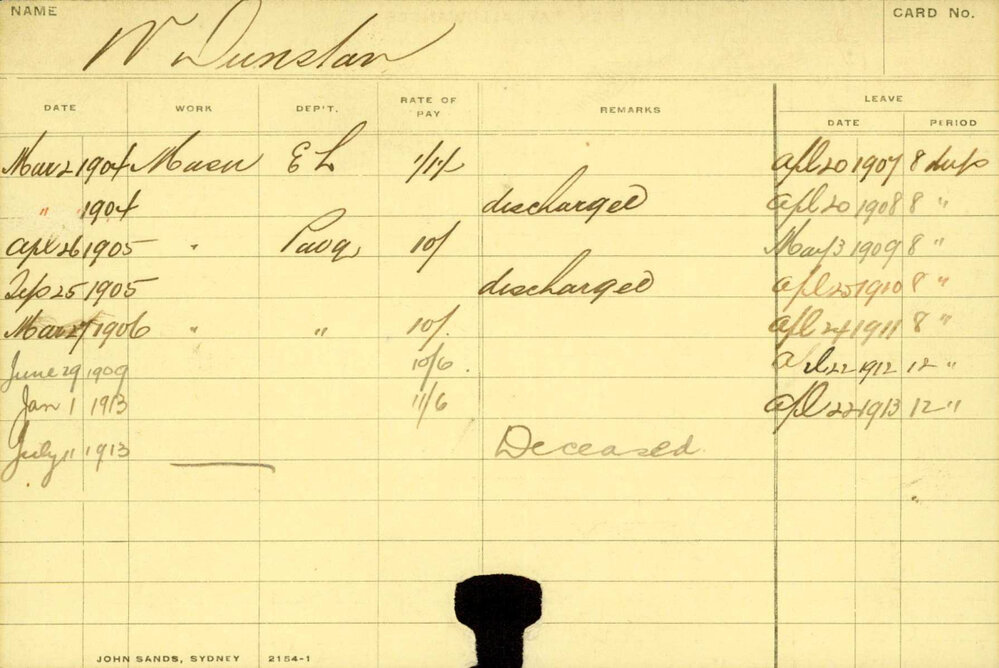 NAME CARD No.
W Dunstan
DATE WORK DEP'T. RATE OF PAY REMARKS LEAVE
DATE PERIOD
Mar 2 1904 Mason E L 11/ Apl 20 1907 8 days
" 1904 discharged Apl 20 1908 8 "
Apl 26 1905 " Pavg 10/ May 3 1909 8 "
Sep 25 1905 discharged Apl 25 1910 8 "
Mar 27 1906 " " 10/. Apl 24 1911 8 "
June 29 1909 10/6. Apl 22 1912 12 "
Jan 1 1913 11/6 Apl 22 1913 12 "
July 11 1913 Deceased
JOHN SANDS, SYDNEY 2154-1